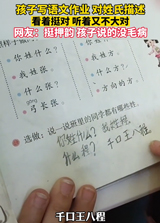 孩子写语文作业 对姓氏描述
看着挺对 听着又不大对
网友：挺押韵 孩子说的没毛病
你姓什么？
我姓张。
什么张？
弓长张。
你姓什么？
我姓方。
什么方？
方向的方。
选做：说一说班里的同学都有哪些姓。
你姓什么？我姓程
什么程？
千口王八程
千口王八程